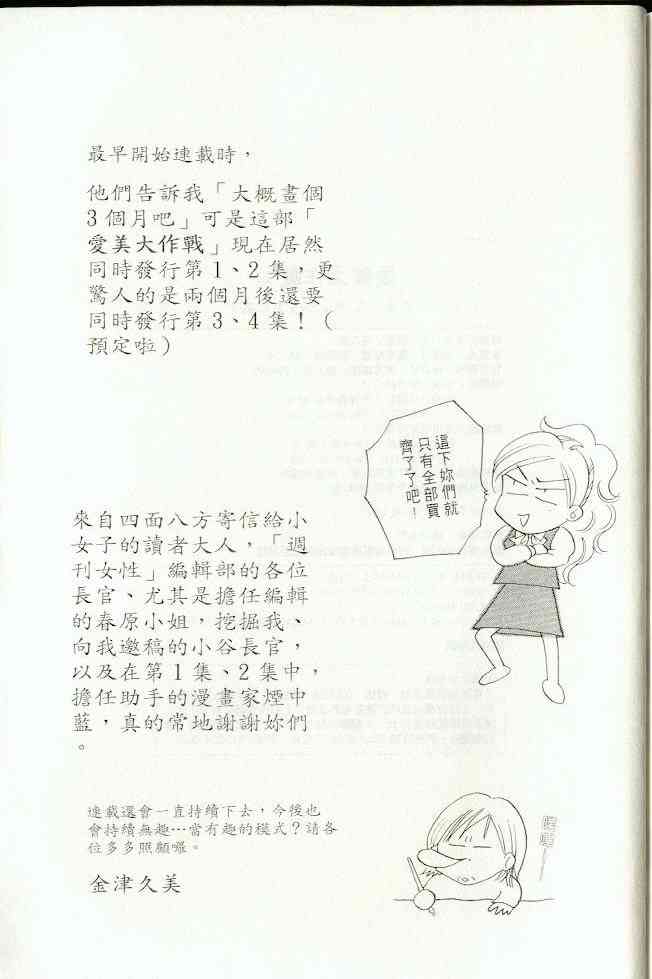 最早開始連載時，
他們告訴我「大概畫個
3個月吧」可是這部「
愛美大作戰」現在居然
同時發行第1、2集，更
驚人的是兩個月後還要
同時發行第3、4集！（
預定啦）
這下妳們就
只有全部買
齊了了吧！
來自四面八方寄信給小
女子的讀者大人，「週
刊女性」編輯部的各位
長官、尤其是擔任編輯
的春原小姐，挖掘我、
向我邀稿的小谷長官，
以及在第1集、2集中，
擔任助手的漫畫家煙中
藍，真的常地謝謝妳們
。
連載還會一直持續下去，今後也
會持續無趣…當有趣的模式？請各
位多多照顧囉。
金津久美